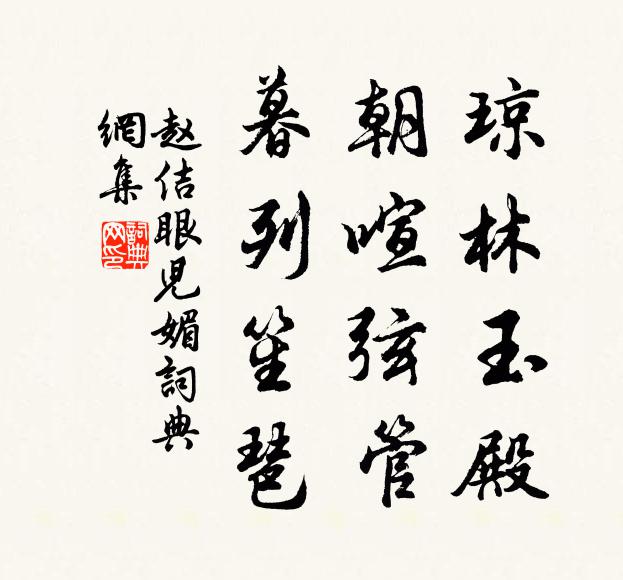 琼林玉殿
朝喧弦管
暮列笙琶
赵佶眼児媚詞典
網集
詞典
网印